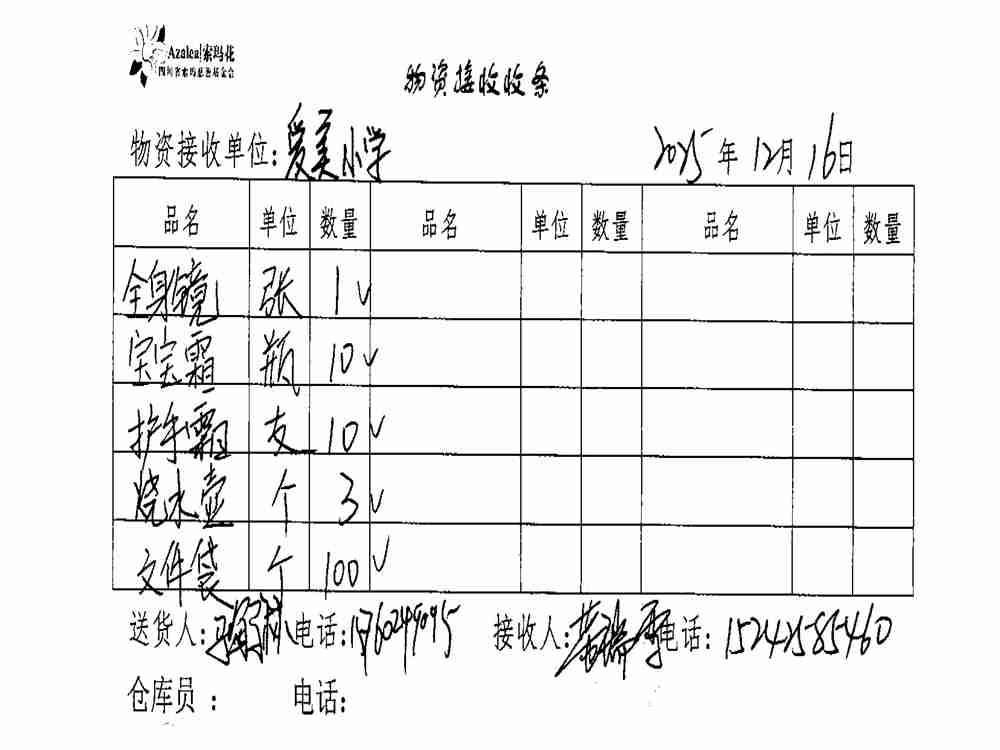 Azalea 索玛花
四川省索玛慈善基金会
物资接收收条
物资接收单位：爱美小学 2025年12月16日
品名 单位 数量 品名 单位 数量 品名 单位 数量
全身镜 张 1 √
宝宝霜 瓶 10 √
护手霜 支 10 √
烧水壶 个 3 √
文件袋 个 100 √
送货人： 电话： 接收人： 电话：15242585460
仓库员 ： 电话：